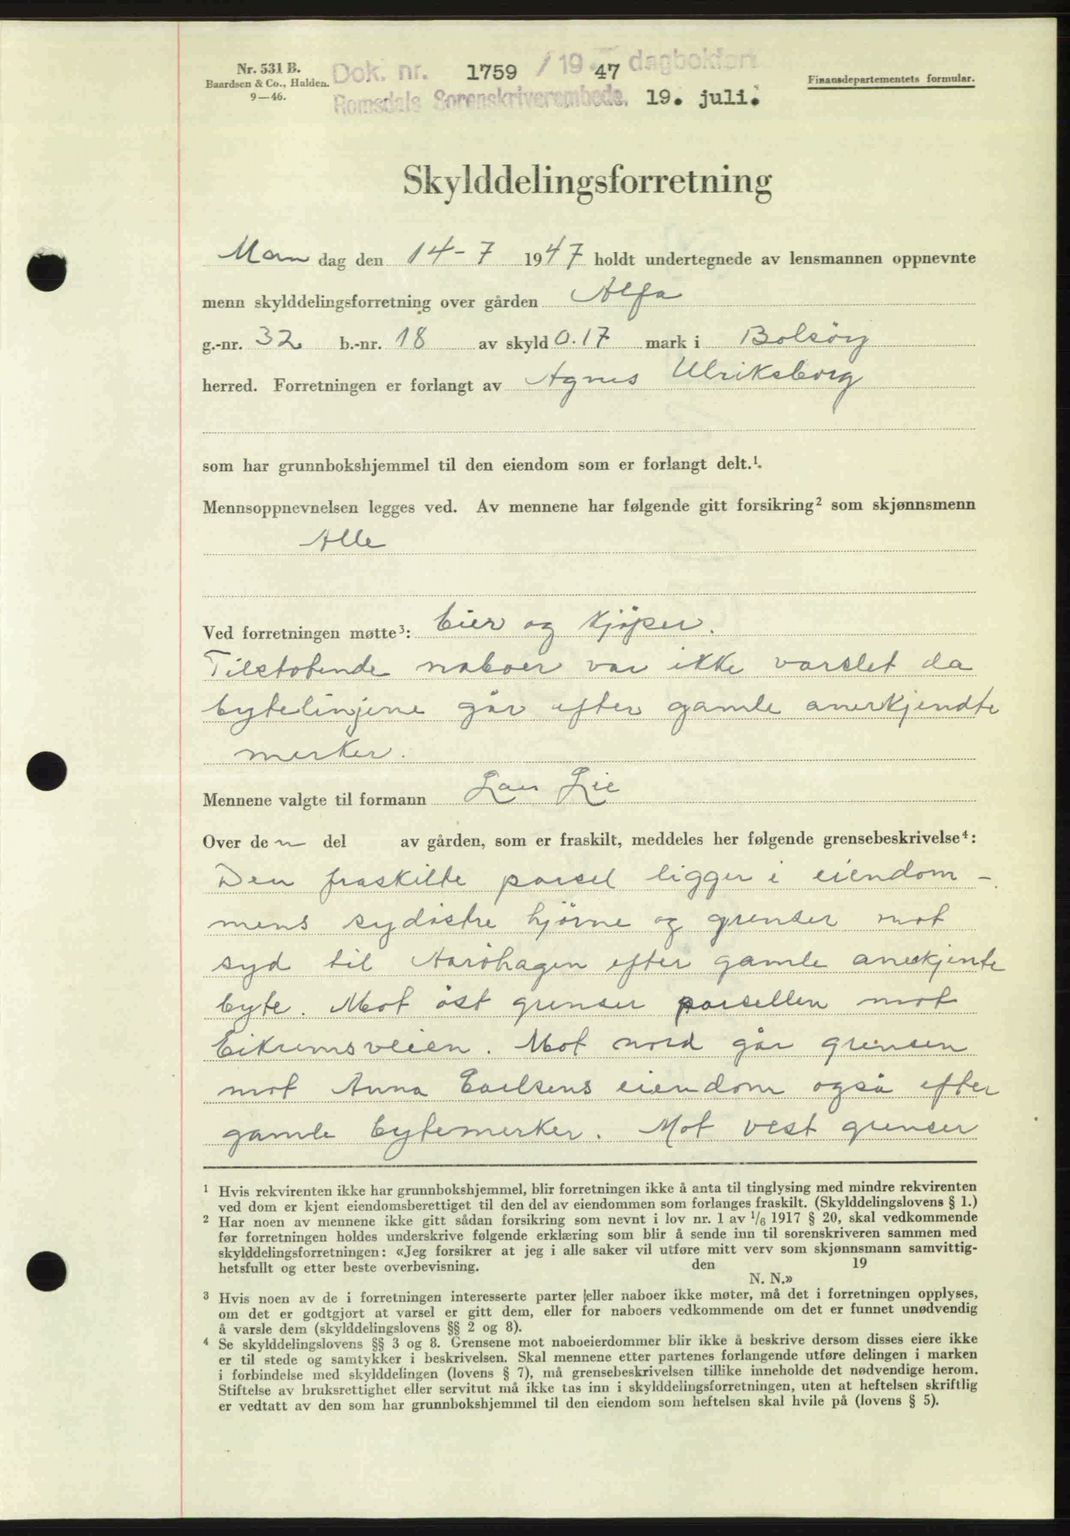 Nr. 531 B.
Baardsen & Co., Halden.
9—46.
Dok. nr. 1759 / 19 47 dagboken
Romsdals Sorenskriverembede. 19. juli.
Finansdepartementets formular.
Skylddelingsforretning
Man dag den 14-7 1947 holdt undertegnede av lensmannen oppnevnte
menn skylddelingsforretning over gården Alfa
g.-nr. 32 b.-nr. 18 av skyld 0.17 mark i Bolsøy
herred. Forretningen er forlangt av Agnes Ulriksborg
som har grunnbokshjemmel til den eiendom som er forlangt delt.¹.
Mennsoppnevnelsen legges ved. Av mennene har følgende gitt forsikring² som skjønnsmenn
Alle
Ved forretningen møtte³: Eier og kjöper.
Tilstötende naboer var ikke varslet da
bytelinjene går efter gamle anerkjendte
merker.
Mennene valgte til formann Lars Lie
Over de n del av gården, som er fraskilt, meddeles her følgende grensebeskrivelse⁴:
Den fraskilte parsel ligger i eiendom-
mens sydöstre hjörne og grenser mot
syd til Aaröhagen efter gamle anerkjente
byte. Mot öst grenser parsellen mot
Eikremsveien. Mot nord går grensen
mot Anna Carlsens eiendom også efter
gamle bytemerker. Mot vest grenser
¹ Hvis rekvirenten ikke har grunnbokshjemmel, blir forretningen ikke å anta til tinglysing med mindre rekvirenten
ved dom er kjent eiendomsberettiget til den del av eiendommen som forlanges fraskilt. (Skylddelingslovens § 1.)
² Har noen av mennene ikke gitt sådan forsikring som nevnt i lov nr. 1 av ¹/₆ 1917 § 20, skal vedkommende
før forretningen holdes underskrive følgende erklæring som blir å sende inn til sorenskriveren sammen med
skylddelingsforretningen: «Jeg forsikrer at jeg i alle saker vil utføre mitt verv som skjønnsmann samvittig-
hetsfullt og etter beste overbevisning. den 19
N. N.»
³ Hvis noen av de i forretningen interesserte parter eller naboer ikke møter, må det i forretningen opplyses,
om det er godtgjort at varsel er gitt dem, eller for naboers vedkommende om det er funnet unødvendig
å varsle dem (skylddelingslovens §§ 2 og 8).
⁴ Se skylddelingslovens §§ 3 og 8. Grensene mot naboeierdommer blir ikke å beskrive dersom disses eiere ikke
er til stede og samtykker i beskrivelsen. Skal mennene etter partenes forlangende utføre delingen i marken
i forbindelse med skylddelingen (lovens § 7), må grensebeskrivelsen tillike inneholde det nødvendige herom.
Stiftelse av bruksrettighet eller servitut må ikke tas inn i skylddelingsforretningen, uten at heftelsen skriftlig
er vedtatt av den som har grunnbokshjemmel til den eiendom som heftelsen skal hvile på (lovens § 5).